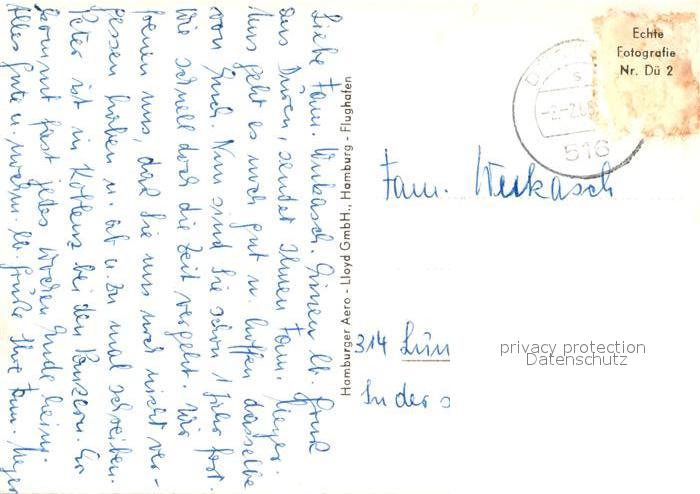 Liebe Fam. Wukasch. Einen lb. Gruß
aus Düren, sendet Ihnen Fam. Meyer.
Uns geht es noch gut u. hoffen dasselbe
von Euch. Nun sind Sie schon 1 Jahr fort.
Wie schnell doch die Zeit vergeht. Wir
freuen uns, daß Sie uns noch nicht ver-
gessen haben u. ab u. zu mal schreiben.
Peter ist in Koblenz bei den Panzern. Er
kommt fast jedes Wochenende heim.
Alles Gute u. nochm. lb. Grüße Ihre Fam. Meyer
Hamburger Aero - Lloyd GmbH., Hamburg - Flughafen
Echte
Fotografie
Nr. Dü 2
516
Fam. Wukasch
314 Lün
In der
privacy protection
Datenschutz